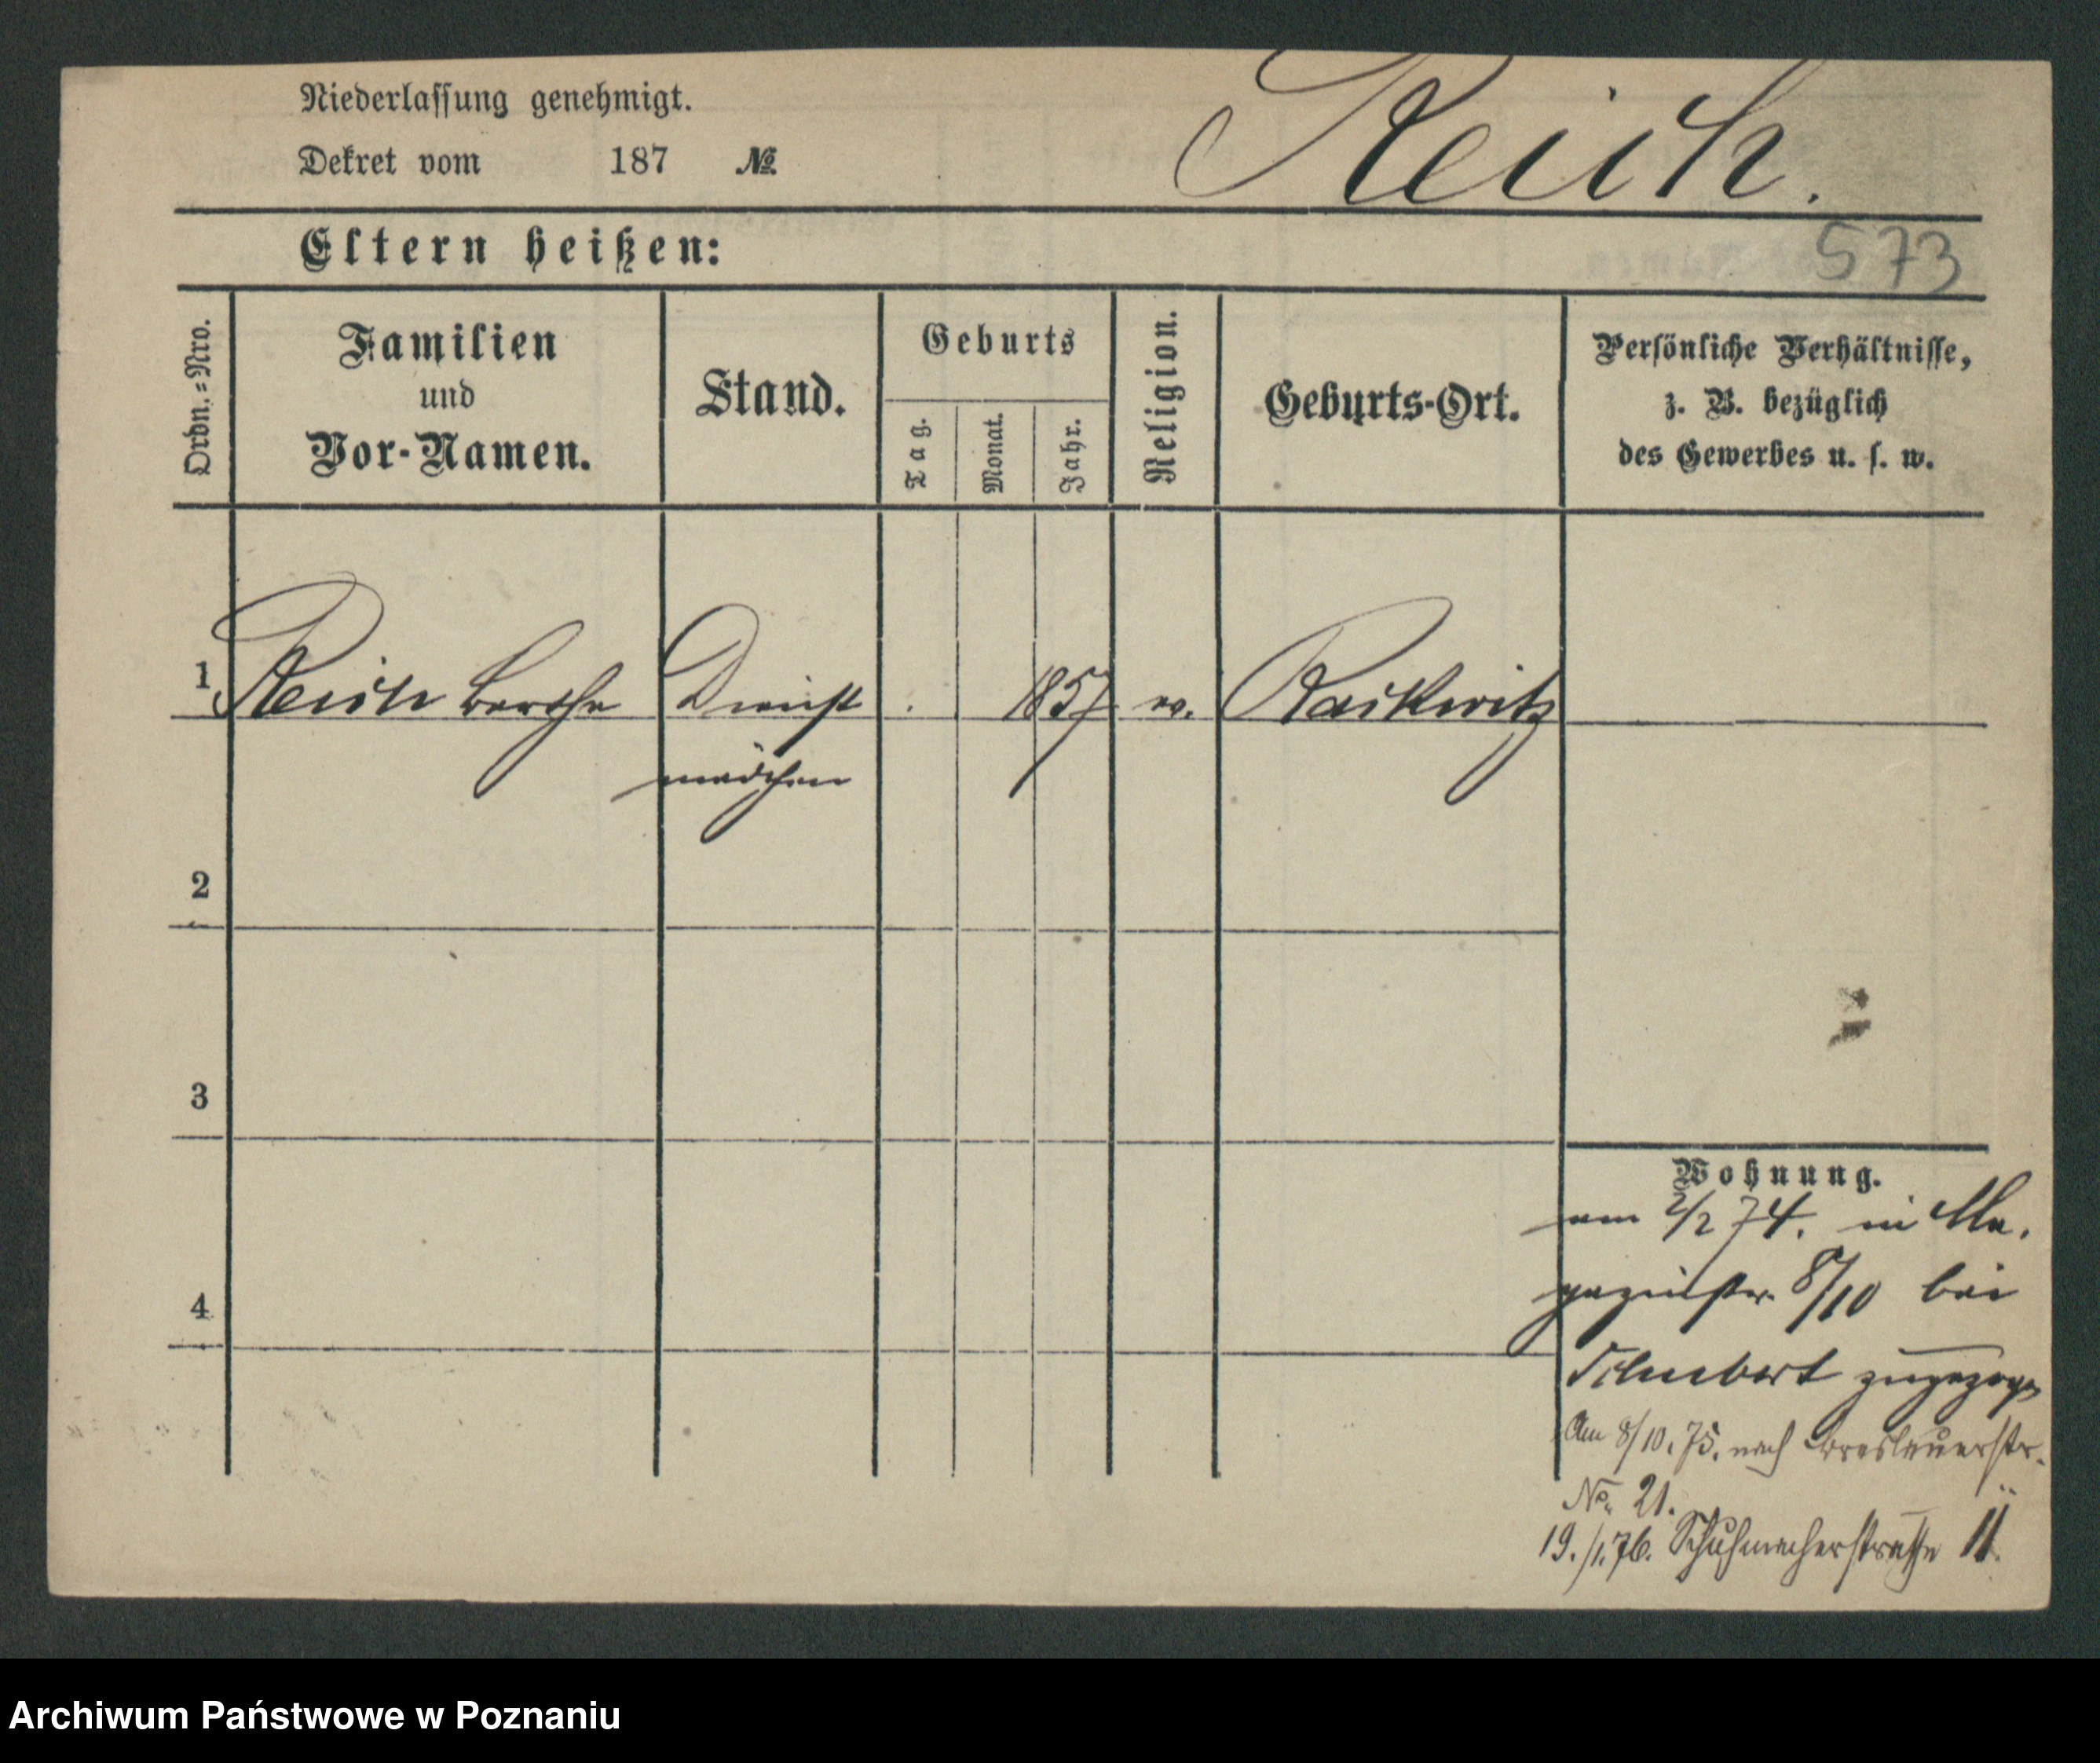 Niederlassung genehmigt.
Dekret vom 187 №
Reich.
Eltern heißen:
573
Ordn.=Nro.
Familien
und
Vor-Namen.
Stand.
Geburts
Tag.
Monat.
Jahr.
Religion.
Geburts-Ort.
Persönliche Verhältnisse,
z. B. bezüglich
des Gewerbes u. s. w.
1 Reich Berthe Dienst 1857 ev. Raikwitz
mädchen
2
3
4
Wohnung.
am 2/2 74. in Ma,
gazinstr. 8/10 bei
Schubert zugezogen
Am 8/10. 75. nach Breslauerstr.
No. 21.
19./1.76. Schuhmacherstraße 11.
Archiwum Państwowe w Poznaniu